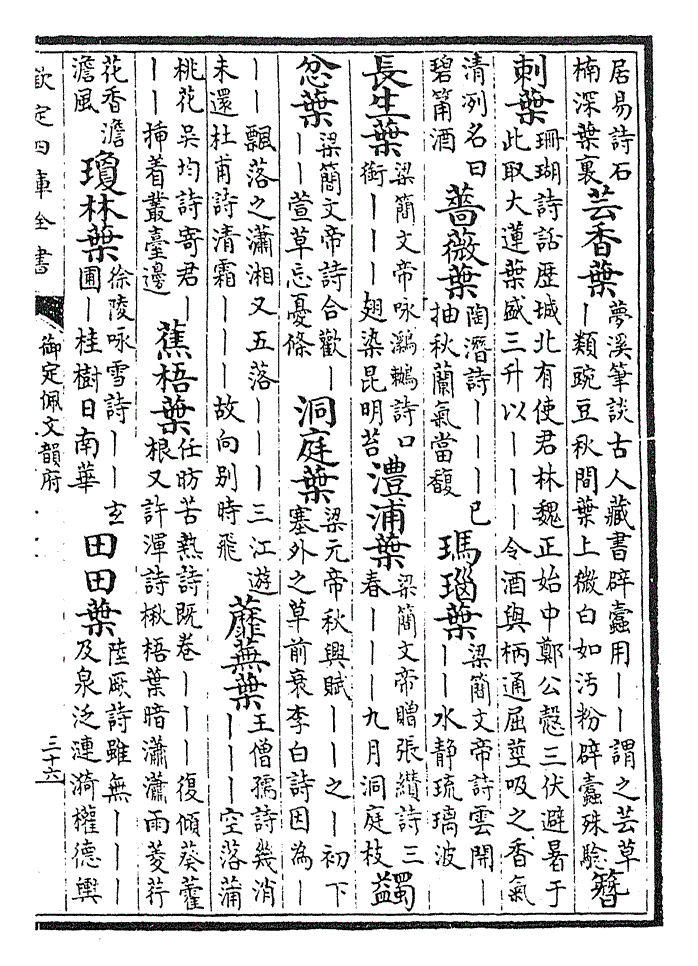 居易詩石
楠深葉裏
芸香葉
夢溪筆談古人藏書辟蠧用丨丨謂之芸草
丨類豌豆秋間葉上微白如污粉辟蠧殊騐
簪
刺葉
珊瑚詩話歴城北有使君林魏正始中鄭公慤三伏避暑于
此取大蓮葉盛三升以丨丨丨令酒與柄通屈莖吸之香氣
清洌名曰
碧筩酒
薔薇葉
陶潛詩丨丨丨已
抽秋蘭氣當馥
瑪瑙葉
梁簡文帝詩雲開丨
丨丨水靜琉璃波
長生葉
梁簡文帝咏鸂鶒詩口
銜丨丨丨翅染昆明苔
澧浦葉
梁簡文帝贈張纘詩三
春丨丨丨九月洞庭枝
蠲
忿葉
梁簡文帝詩合歡丨
丨丨萱草忘憂條
洞庭葉
梁元帝秋興賦丨丨之丨初下
塞外之草前衰李白詩因為丨
丨丨飄落之瀟湘又五落丨丨丨三江遊
未還杜甫詩清霜丨丨丨故向別時飛
蘼蕪葉
王僧孺詩幾消
丨丨丨空落蒲
桃花吳均詩寄君丨
丨丨揷着叢臺邊
蕉梧葉
任昉苦熱詩既卷丨丨丨復傾葵藿
根又許渾詩楸梧葉暗瀟瀟雨菱荇
花香澹
澹風
瓊林葉
徐陵咏雪詩丨丨丨玄
圃丨桂樹日南華
田田葉
陸厥詩雖無丨丨丨
及泉泛漣漪權德輿
欽定四庫全書
御定佩文韻府
三十六